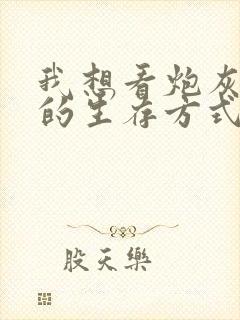 我想看炮灰
的生存方式
股天乐